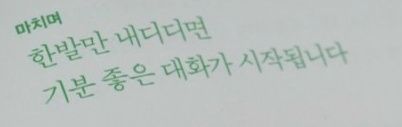 마치며
한발만 내디디면
기분 좋은 대화가 시작됩니다